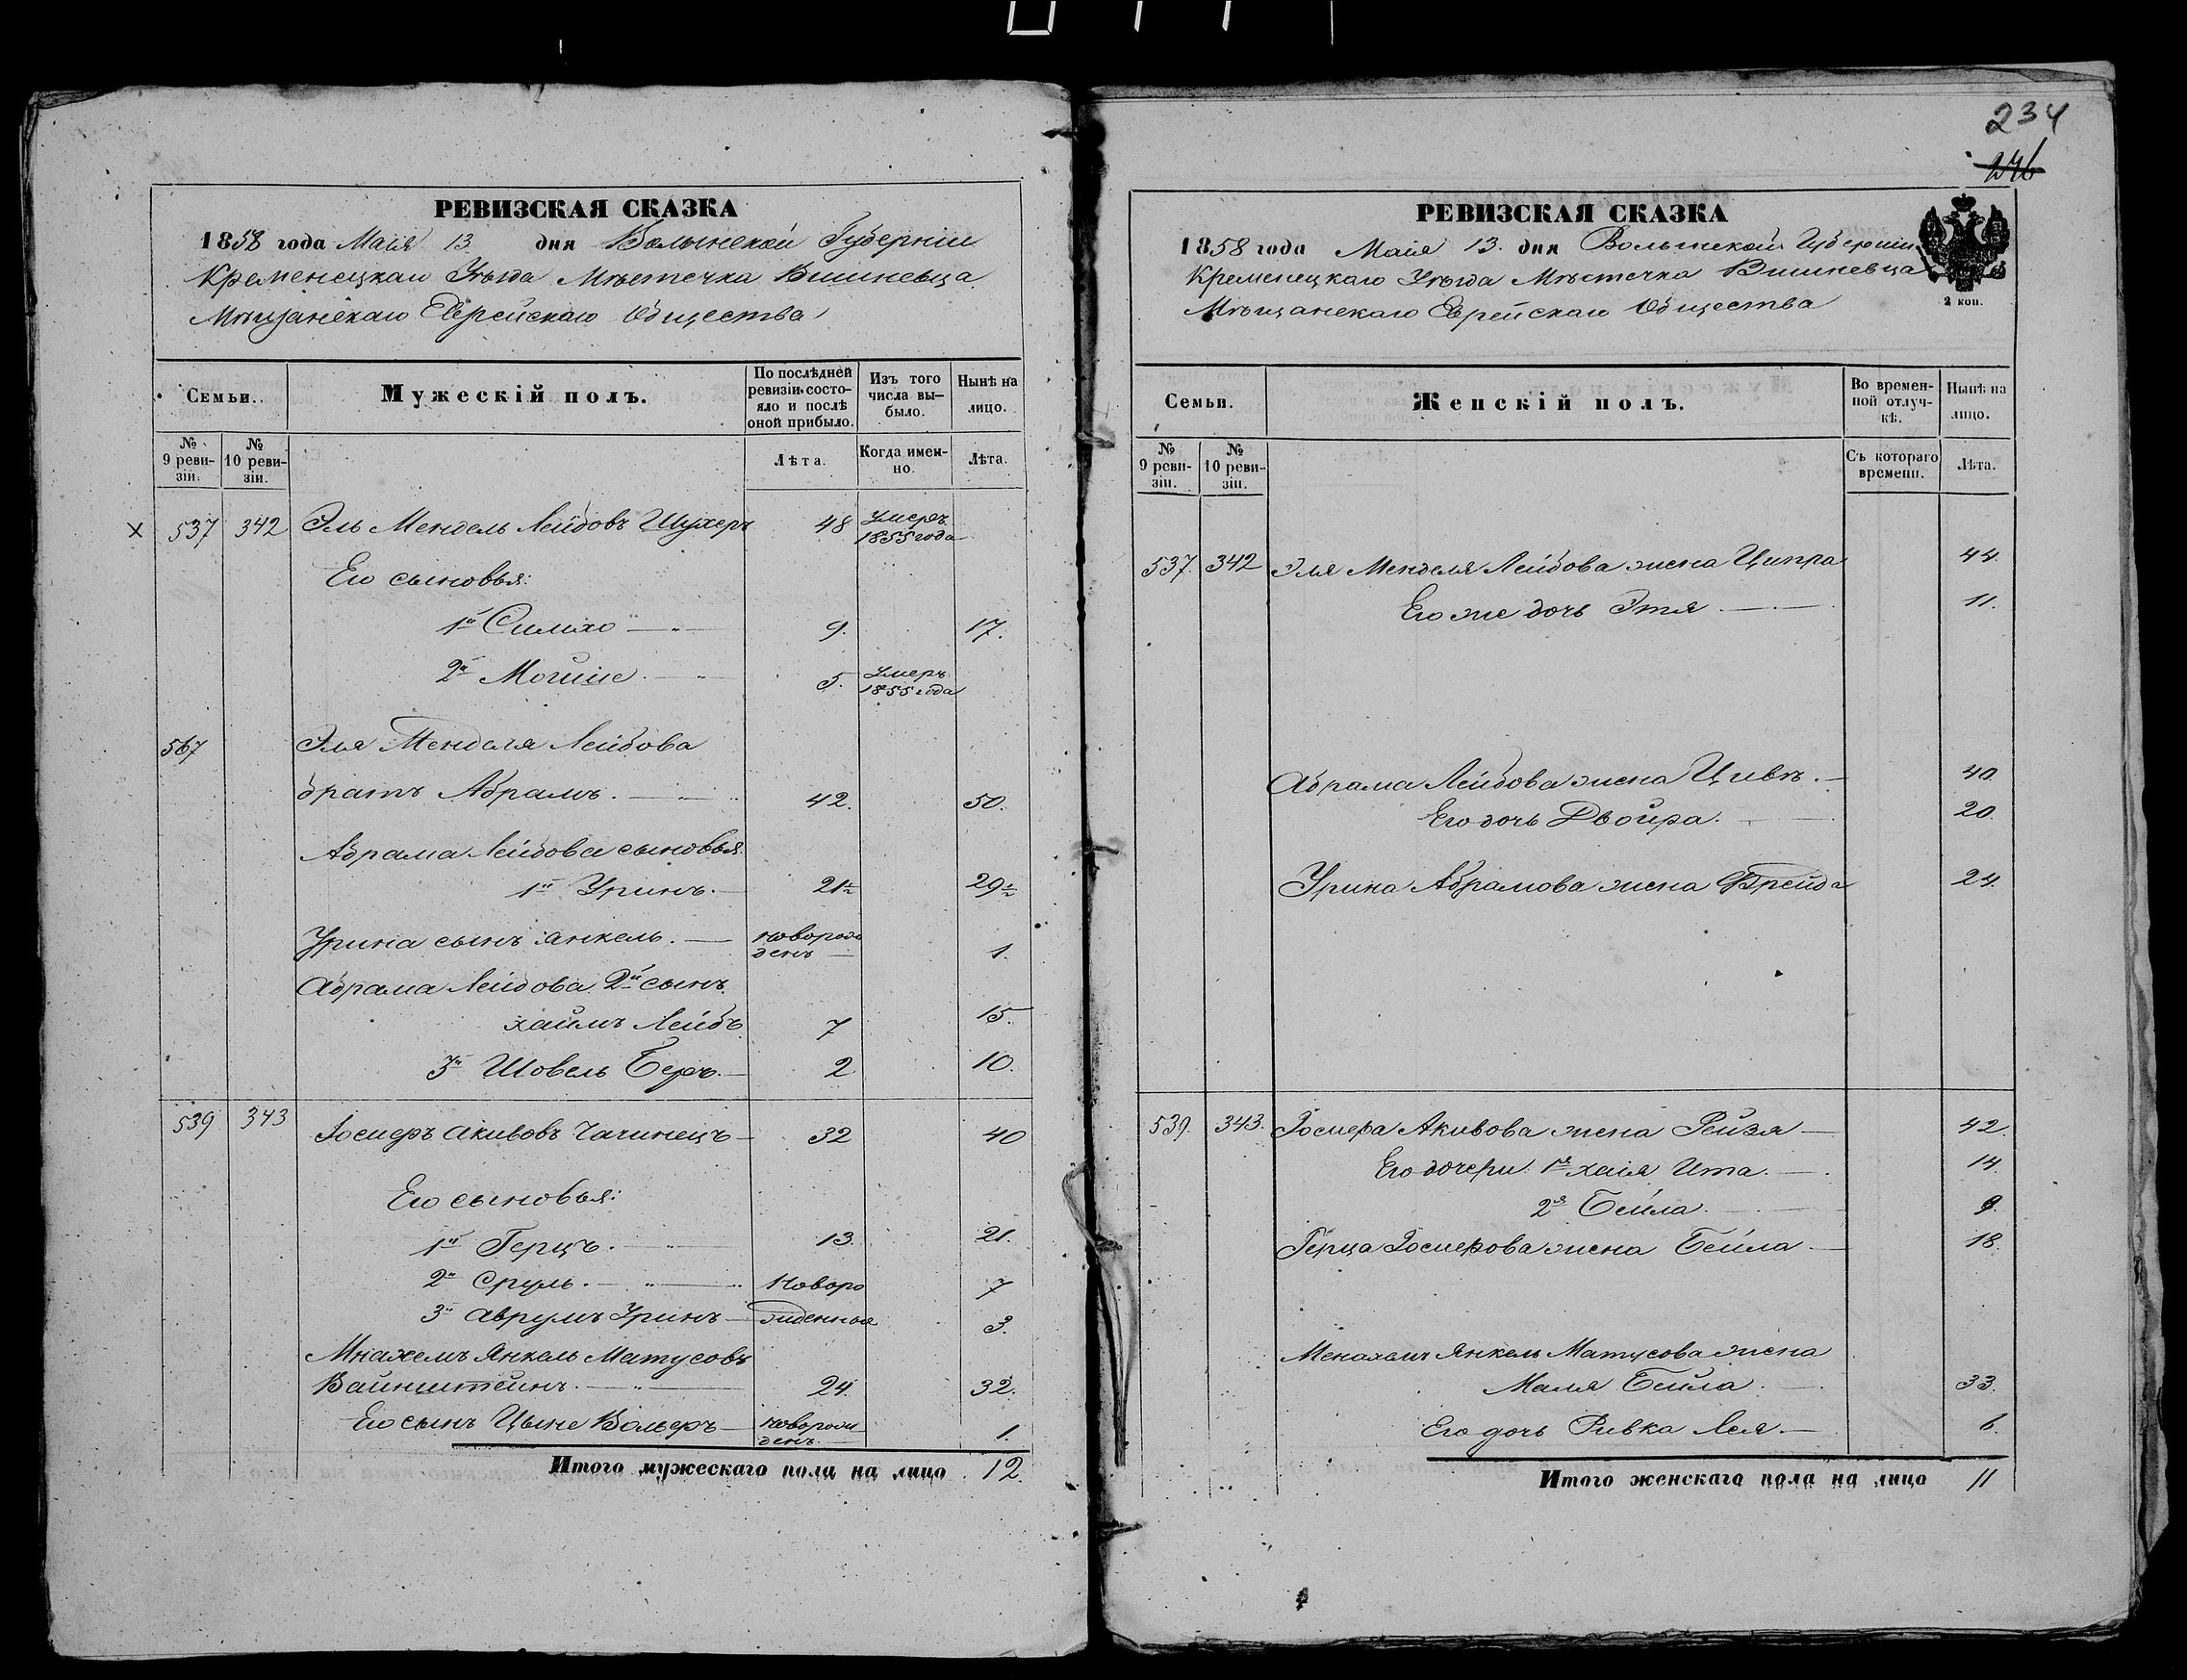 234
246
РЕВИЗСКАЯ СКАЗКА
1858 года Маія 13 дня Волынской Губерніи
Кременецкаго Уѣзда Мѣстечка Вишневца
Мѣщанскаго Еврейскаго Общества
Семьи.
Мужескій полъ.
По послѣдней ревизіи состояло и послѣ оной прибыло.
Изъ того числа выбыло.
Нынѣ на лицо.
№ 9 ревизіи.
№ 10 ревизіи.
Лѣта.
Когда именно.
Лѣта.
537 342 Эль Мендель Лейбовъ Шухеръ 48 Умеръ 1855 года
Его сыновья:
1й Симхо 9. 17.
2й Мошко 5. Умеръ 1855 года
567 Эля Менделя Лейбова
братъ Абрамъ. 42. 50.
Абрама Лейбова сыновья
1й Уринъ. 21½ 29½
Урина сынъ Янкель. новорожденъ 1.
Абрама Лейбова 2й сынъ
Хаимъ Лейбъ 7 15.
3й Шовель Беръ. 2 10.
539 343 Іосиеръ Акивовъ Чачинецъ 32 40
Его сыновья:
1й Герцъ. 13. 21.
2й Сруль. Новоро 7
3й Аврумъ Уринъ жденные 3.
Мнахемъ Янкель Матусовъ
Вайнштейнъ. 24. 32.
Его сынъ Цыне Вольеръ новорожденъ 1.
Итого мужескаго пола на лицо 12.
РЕВИЗСКАЯ СКАЗКА
1858 года Маія 13. дня Волынской Губерніи
Кременецкаго Уѣзда Мѣстечка Вишневца
Мѣщанскаго Еврейскаго Общества
2 коп.
Семьи.
Женскій полъ.
Во временной отлучкѣ.
Нынѣ на лицо.
№ 9 ревизіи.
№ 10 ревизіи.
Съ котораго времени.
Лѣта.
537. 342 Эля Менделя Лейбова жена Ципра 44.
Его же дочь Этя 11.
Абрама Лейбова жена Цивъ. 40.
Его дочь Двойра. 20.
Урина Абрамова жена Фрейда 24.
539. 343. Іосиера Акивова жена Рейзя 42.
Его дочери: 1я Хаія Ита. 14
2я Бейла. 9.
Герца Іосиерова жена Бейла 18.
Менахемъ Янкель Матусова жена
Маля Бейла. 33.
Его дочь Ривка Лея. 6.
Итого женскаго пола на лицо 11